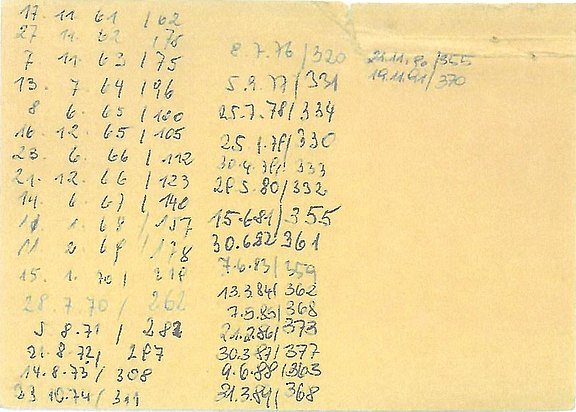 17. 11. 61 / 62
27 11. 62 / 75
7 11. 63 / 75
13. 7 64 / 96
8 6. 65 / 100
16. 12. 65 / 105
23. 6. 66 / 112
21. 12. 66 / 123
14. 6 67 / 140
1. 68 / 157
11 2. 69 / 178
15. 1. 70 /
28. 7. 70 / 262
5. 8. 71 / 282
21. 8. 72 / 287
14. 8. 73 / 308
23 10. 74 / 311
8. 7. 76 / 320
5. 9. 77 / 331
25. 7. 78 / 334
25. 1. 79 / 330
30. 4. 79 / 333
28. 5. 80 / 332
15. 6 81 / 355
30. 6 82 / 361
7. 6. 83 / 359
13. 3. 84 / 362
7. 5. 85 / 368
21. 2. 86 / 373
30. 3. 87 / 377
9. 6. 88 / 363
31. 3. 89 / 368
21. 11. 90 / 355
19. 11. 91 / 370